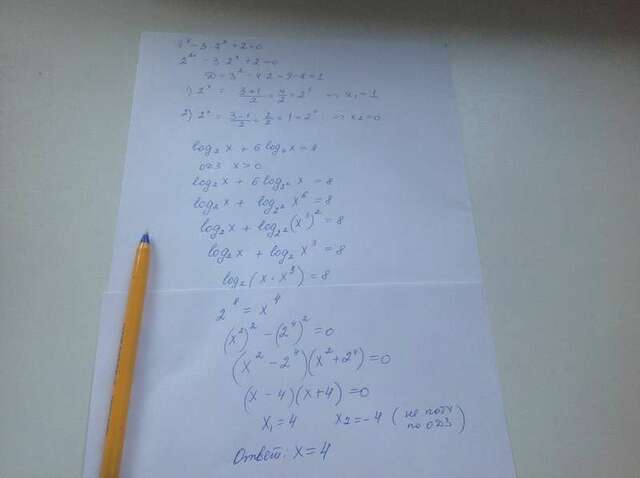 4ˣ - 3·2ˣ + 2 = 0
2²ˣ - 3·2ˣ + 2 = 0
D = 3² - 4·2 = 9 - 8 = 1
1) 2ˣ = (3+1)/2 = 4/2 = 2¹ => x₁ = 1
2) 2ˣ = (3-1)/2 = 2/2 = 1 = 2⁰ => x₂ = 0
log₂ x + 6 log₄ x = 8
ОДЗ x > 0
log₂ x + 6 log_{2²} x = 8
log₂ x + log_{2²} x⁶ = 8
log₂ x + log_{2²} (x³)² = 8
log₂ x + log₂ x³ = 8
log₂ (x · x³) = 8
2⁸ = x⁴
(x²)² - (2⁴)² = 0
(x² - 2⁴)(x² + 2⁴) = 0
(x - 4)(x + 4) = 0
x₁ = 4 x₂ = -4 (не подх по ОДЗ)
Ответ: x = 4